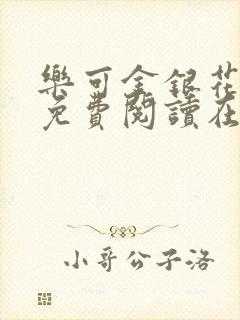 樂可金銀花
免費閱讀在
小哥公子洛